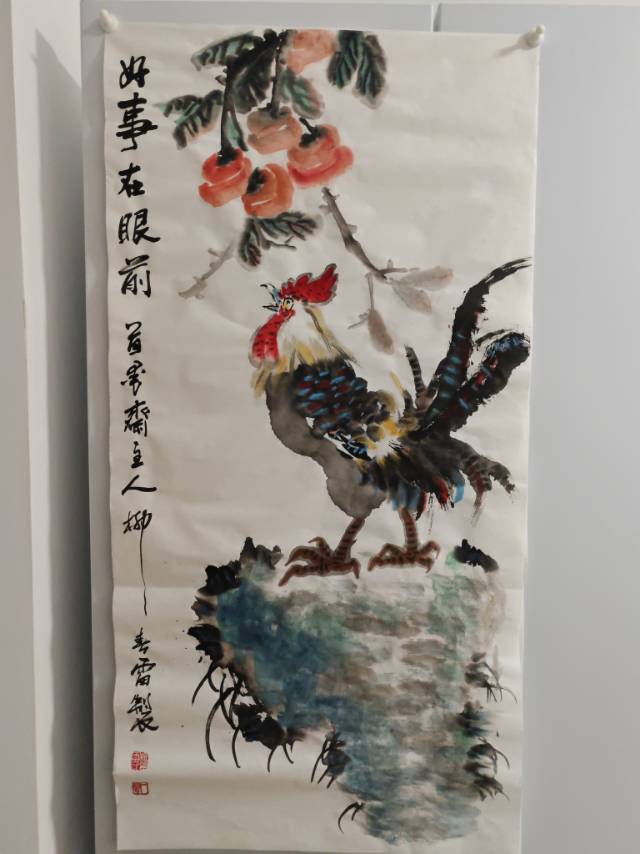 好事在眼前 齋主人柳春雷製